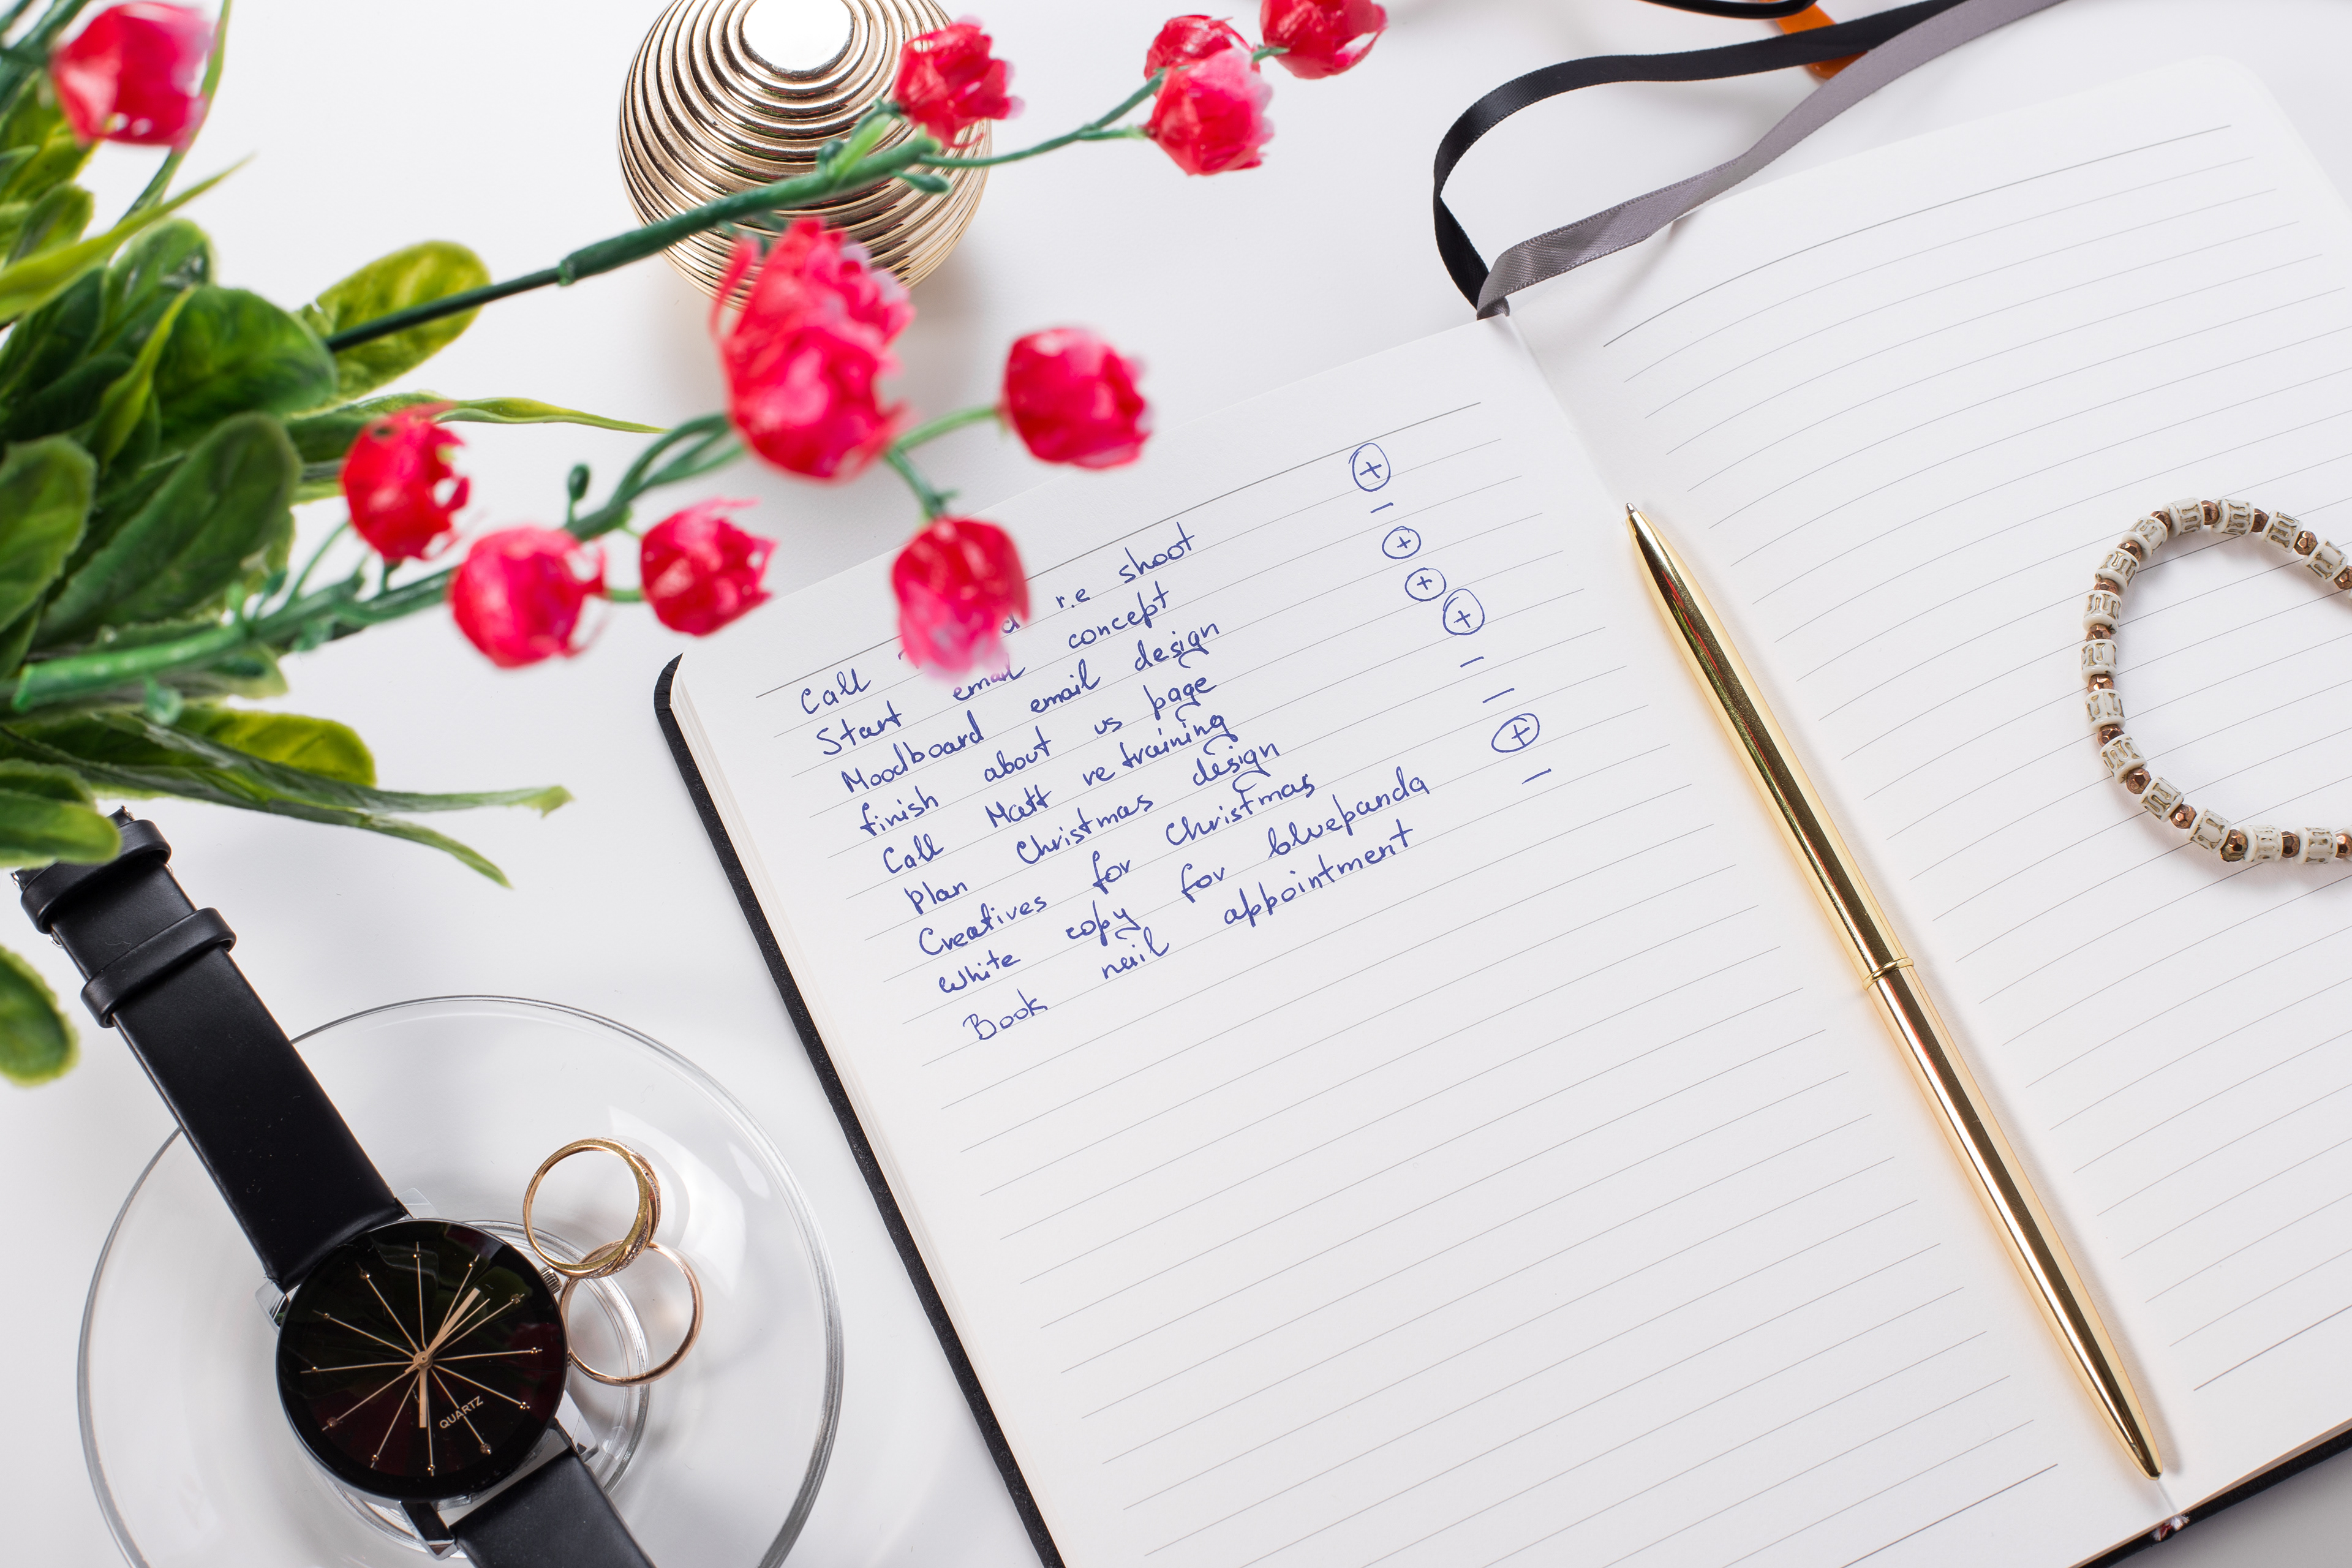 Call r.e shoot ⊕
Start email concept –
Moodboard email design ⊕
finish about us page ⊕
Call Matt re training ⊕
plan Christmas design –
Creatives for Christmas –
White copy for bluepanda ⊕
Book nail appointment –
QUARTZ